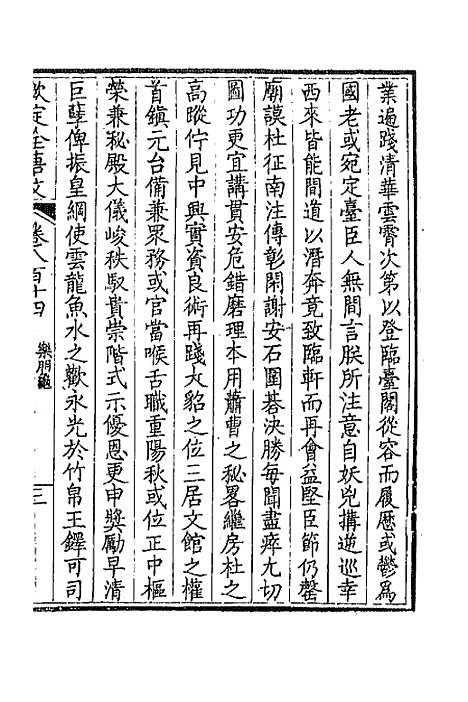 業遍踐清華雲霄次第以登臨臺閣從容而履歷或鬱為
國老或宛定臺臣人無間言朕所注意自妖兇搆逆巡幸
西來皆能間道以潛奔竟致臨軒而再會益堅臣節仍罄
廟謨杜征南注傳彰閑謝安石圍棊決勝每聞盡瘁尤切
圖功更宜講貫安危錯磨理本用蕭曹之秘畧繼房杜之
高蹤佇見中興實資良術再踐大貂之位三居文館之權
首鎮元台備兼眾務或官當喉舌職重陽秋或位正中樞
榮兼秘殿大儀峻秩馭貴崇階式示優恩更申獎勵早清
巨孽俾振皇綱使雲龍魚水之歡永光於竹帛王鐸可司
欽定全唐文 卷八百十四 樂朋龜 三